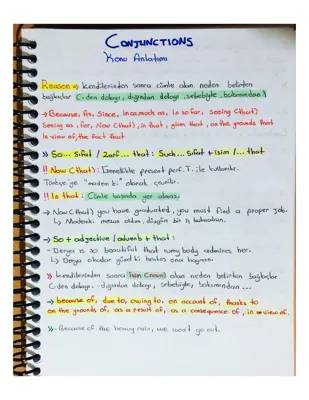 CONJUNCTIONS
Konu Anlatımı
Reason => Kendilerinden sonra cümle alan neden belirten
bağlaçlar (-den dolayı, dığından dolayı, sebebiyle, bakımından)
→ Because, As, Since, in as much as, in so far, seeing (that)
Seeing as, for, Now (that), in that, given that, on the grounds that
in view of, the fact that
» So... Sıfat / Zarf... that: Such... Sıfat + isim /... that
!! Now (that): Genellikle present perf. T. ile kullanılır.
Türkçe'ye "madem ki" olarak çevrilir.
!! Is that: Cümle başında yer almaz.
→ Now (that) you have graduated, you must find a proper job.
→ So + adjective / adverb + that:
- Derya is so beautiful that everybody admires her.
- Derya o kadar güzel ki herkes ona hayran.
» Kendilerinden sonra isim (noun) alan neden belirten bağlaçlar.
(-den dolayı, -dığından dolayı, sebebiyle, bakımından...
→ because of, due to, owing to, on account of, thanks to
on the grounds of, as a result of, as a consequence of, in view of.
» - Because of the heavy rain, we won't go out.